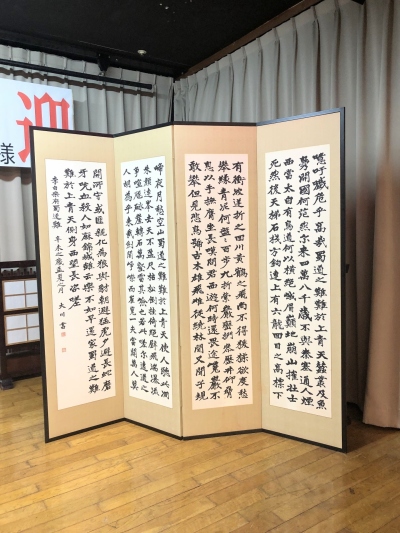 迎
様
噫吁嚱危乎高哉蜀道之難難於上青天蠶叢及魚
鳧開國何茫然爾来四萬八千歳不與秦塞通人煙
西當太白有鳥道何以横絶峨眉巓地崩山摧壮士
死然後天梯石桟方鉤連上有六龍回日之高標下
有衝波逆折之回川黄鶴之飛尚不得猿猱欲度愁
攀縁青泥何盤々百歩九折縈巌巒捫参歴井仰脅
息以手撫膺坐長嘆問君西遊何時還畏途巉巌不
攀但見悲鳥號古木雄飛雌従繞林間又聞子規
啼夜月愁空山蜀道之難難於上青天使人聴此凋
朱顔連峯去天不盈尺枯松倒挂倚絶壁飛湍瀑流
争喧豗砯崖轉石萬壑雷其険也若此嗟爾遠道之
人胡為乎来哉剣閣崢嶸而崔嵬一夫當關萬人莫
開所守或匪親化為狼與豺朝避猛虎夕避長蛇磨
牙吮血殺人如麻錦城雖云樂不如早還家蜀道之難
難於上青天側身西望長咨嗟
李白樂府蜀道難 辛未之歳孟夏之月 大川書